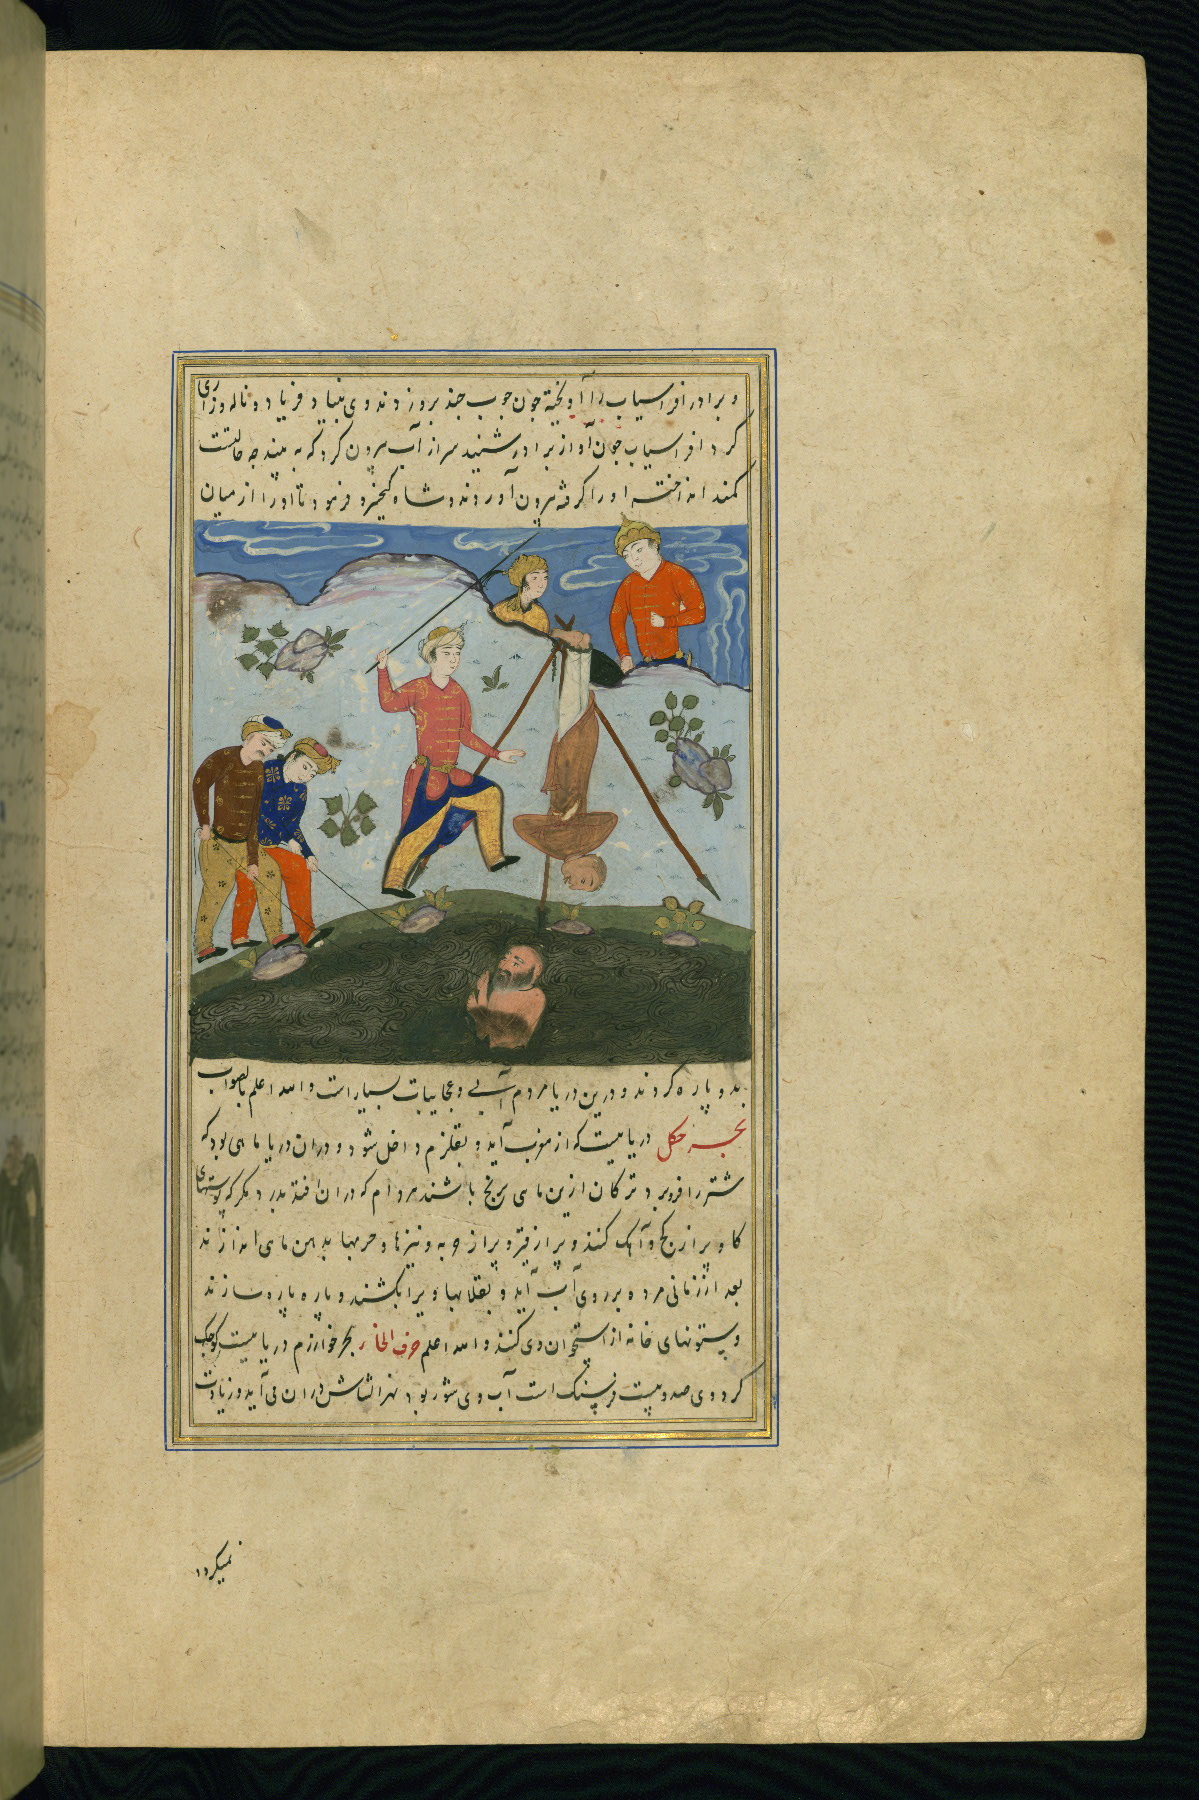 و برادر افراسیاب را آویخته چون چوب چند بروزدند وی بنیاد فریاد و ناله و زاری
کرد افراسیاب چون آواز برادر شنید سر از آب بیرون کرد که به بیند چه حالتست
کمند انداخته او را گرفته بیرون آوردند و شاه کیخسرو فرمود تا او را از میان
بدو پاره کردند و درین دریا مردم آبی و عجایبات بسیار است والله اعلم بالصواب
بحر دریاییست که از مغرب آید و بقلزم داخل شود و در آن دریا ماهی بود که
شتر را فرو برد ترکان ازین ماهی برنج باشند هر دام که در آن افتد بدرد مگر که پوستهای
کاو پر از کچ و آهک کنند و پر از قیر و پر از و نیزها و حربها بدهن ماهی اندازند
بعد از زمانی مرده بر روی آب آید و بقلابها ویرا بکشند و پاره پاره سازند
و ستونهای خانه از استخوان وی کنند والله اعلم حرف الخا بحر خوارزم دریاییست کوچک
کرد وی صد و بیست فرسنک است آب وی شور بود نهر الشاش در آن می آید و زیادت
نمیکردد